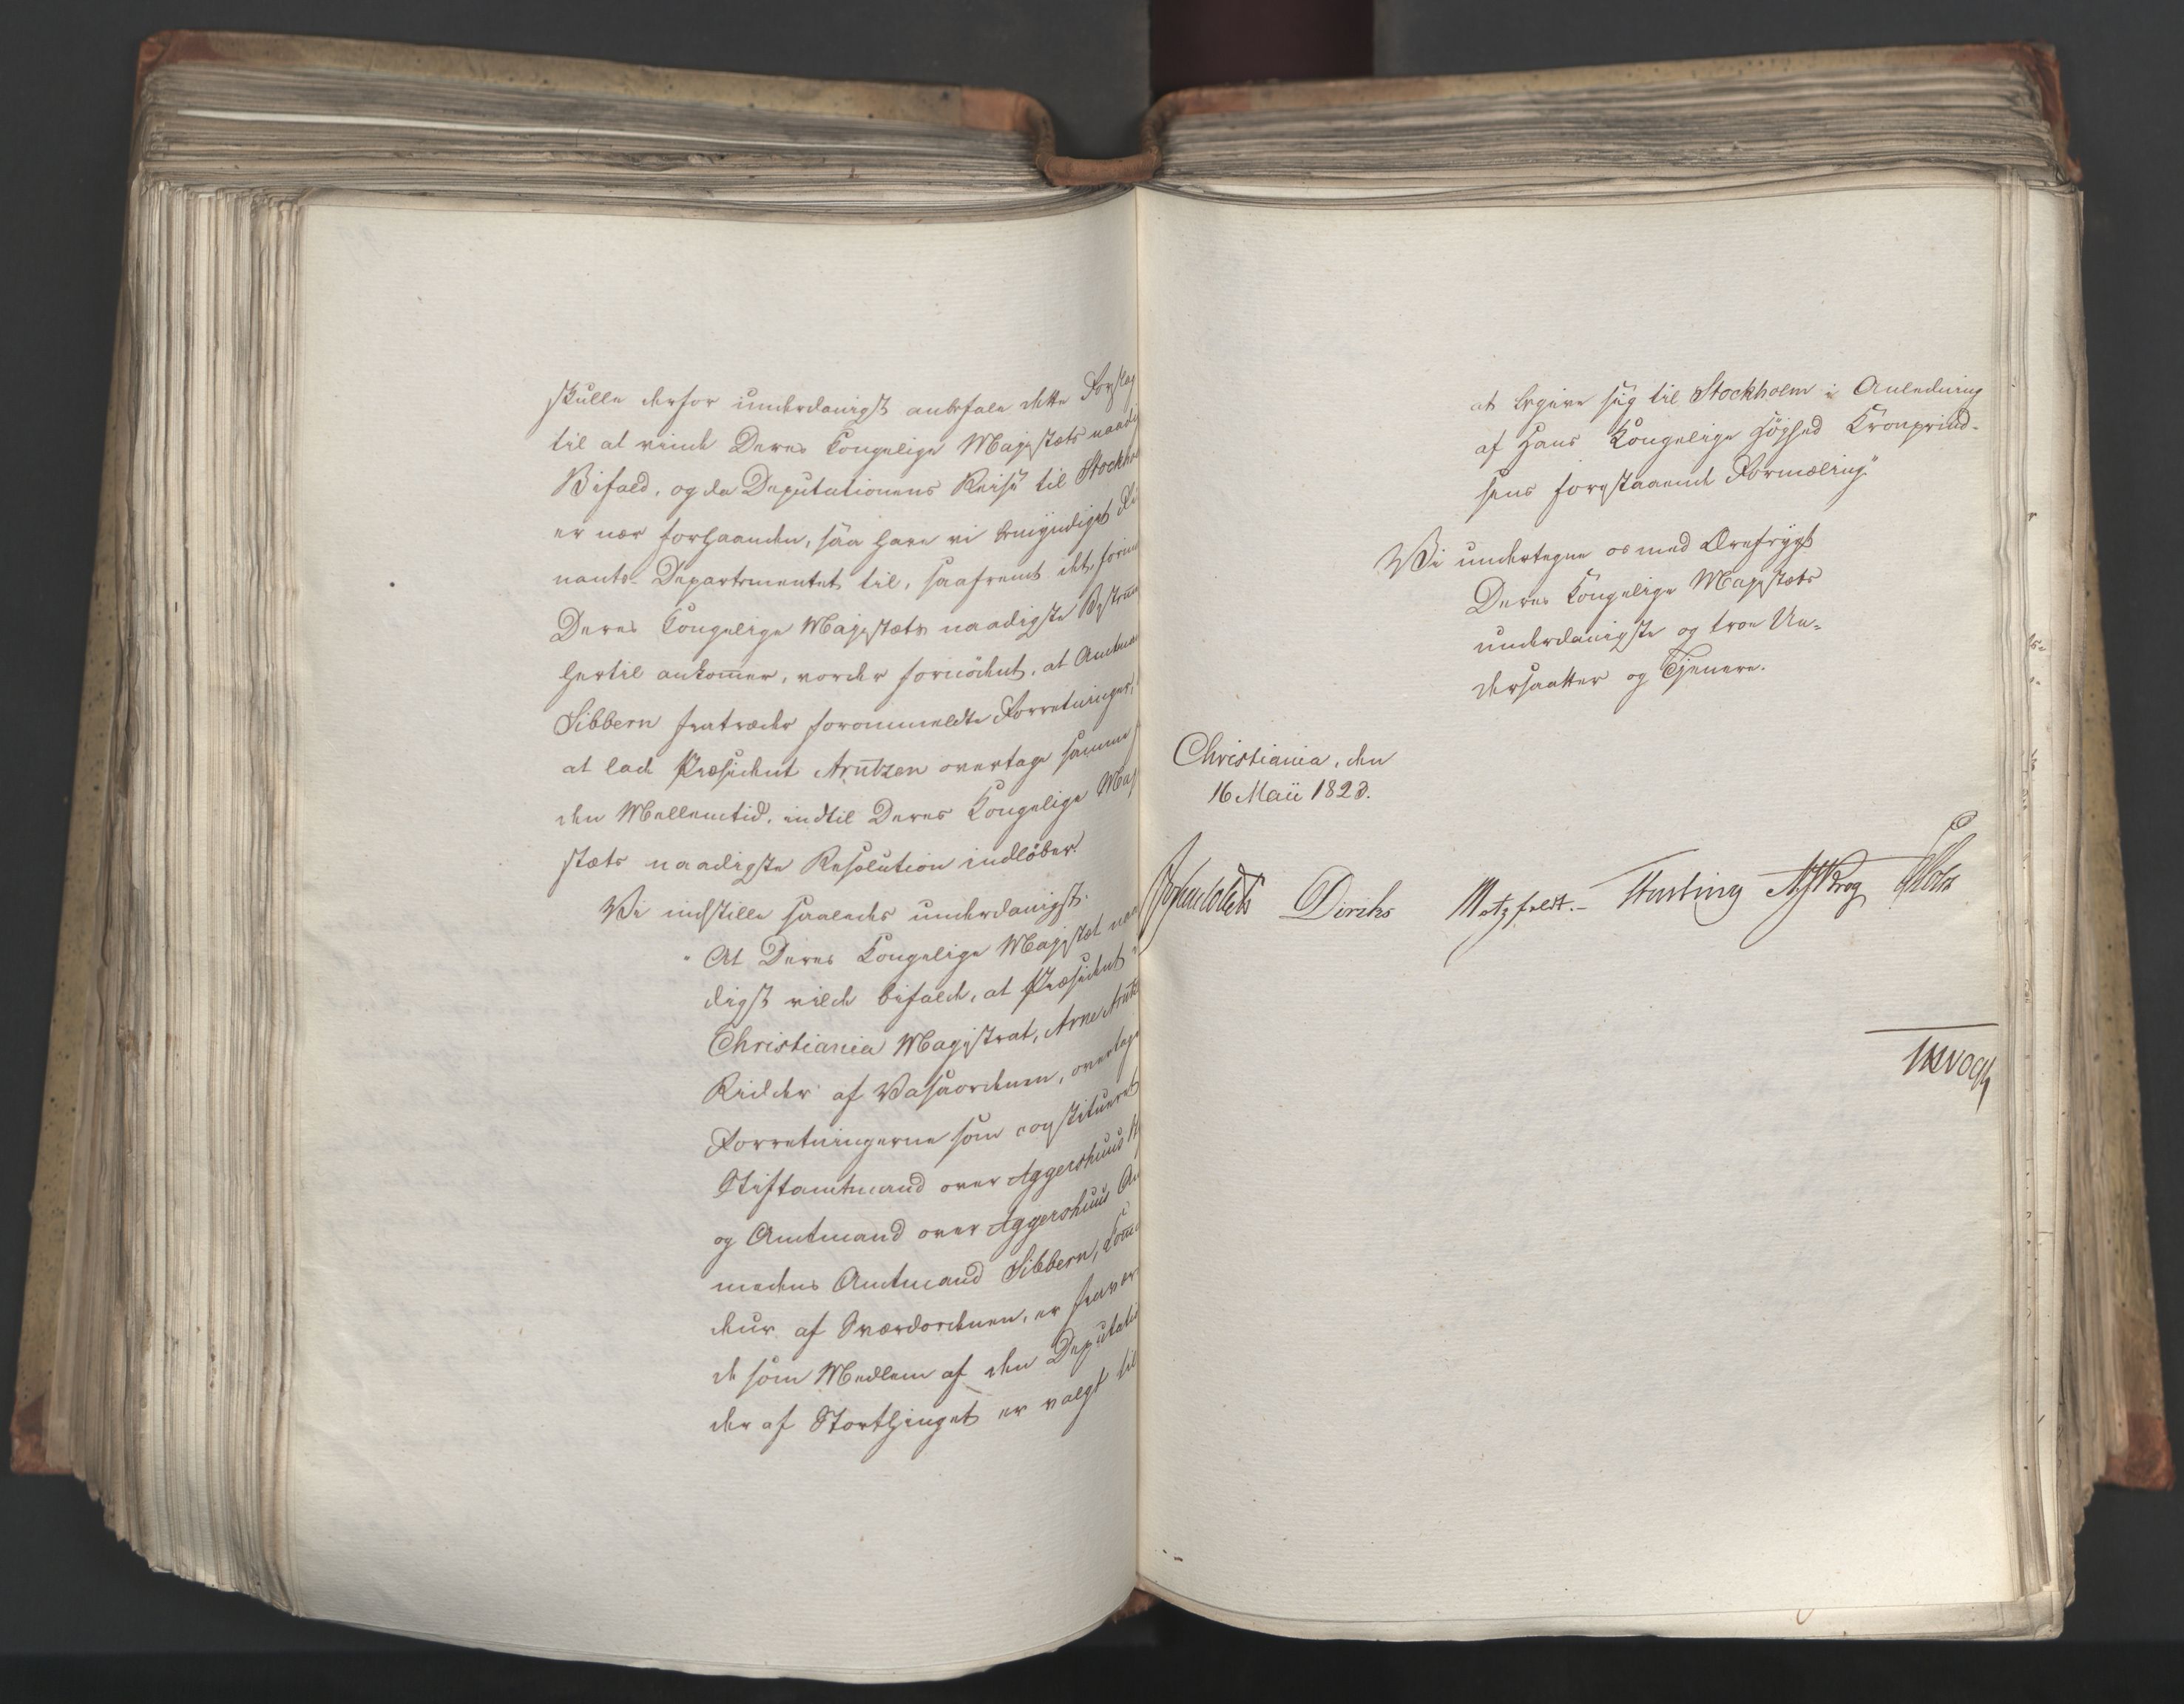 skulle derfor underdanigst anbefale dette Forslag
til at vinde Deres Kongelige Majestæts naadig
Bifald, og da Deputationens Reise til Stockho
er nær forhaanden, saa have vi bemyndiget Fi
nants-Departementet til, saafremt det, forin
Deres Kongelige Majestæts naadigste Bestem
hertil ankommer, vorder fornødent, at Amtma
Sibbern fratræder forommeldte Forretninger,
at lade Præsident Arntzen overtage samme
den Mellemtid, indtil Deres Kongelige Maj
stæts naadigste Resolution indløber.
Vi indstille saaledes underdanigst:
"At Deres Kongelige Majestæt naa
digst vilde bifalde, at Præsident
Christiania Magistrat, Arne Arntz
Ridder af Vasaordenen, overtager
Forretningerne som constitueret
Stiftamtmand over Aggershuus St
og Amtmand over Aggershuus Am
medens Amtmand Sibbern, Com̄
deur af Sværdordenen, er fravær
de som Medlem af den Deputatio
der af Storthinget er valgt til
at begive sig til Stockholm i Anledning
af Hans Kongelige Høyhed Kronprind-
sens forestaaende Formæling."
Vi undertegne os med Ærefrygt
Deres Kongelige Majestæts
underdanigste og troe Un=
dersaatter og Tjenere.
Christiania, den
16 Maii 1823.
Diriks Motzfeldt.- Krog Holst
JHVogt